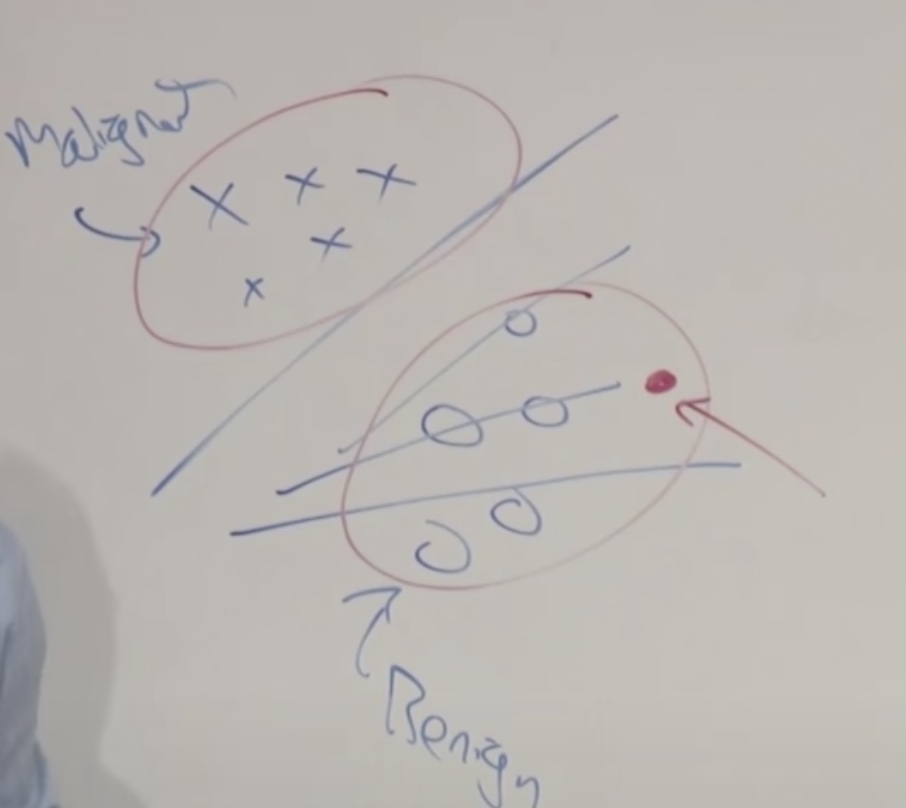 Malignant
Benign